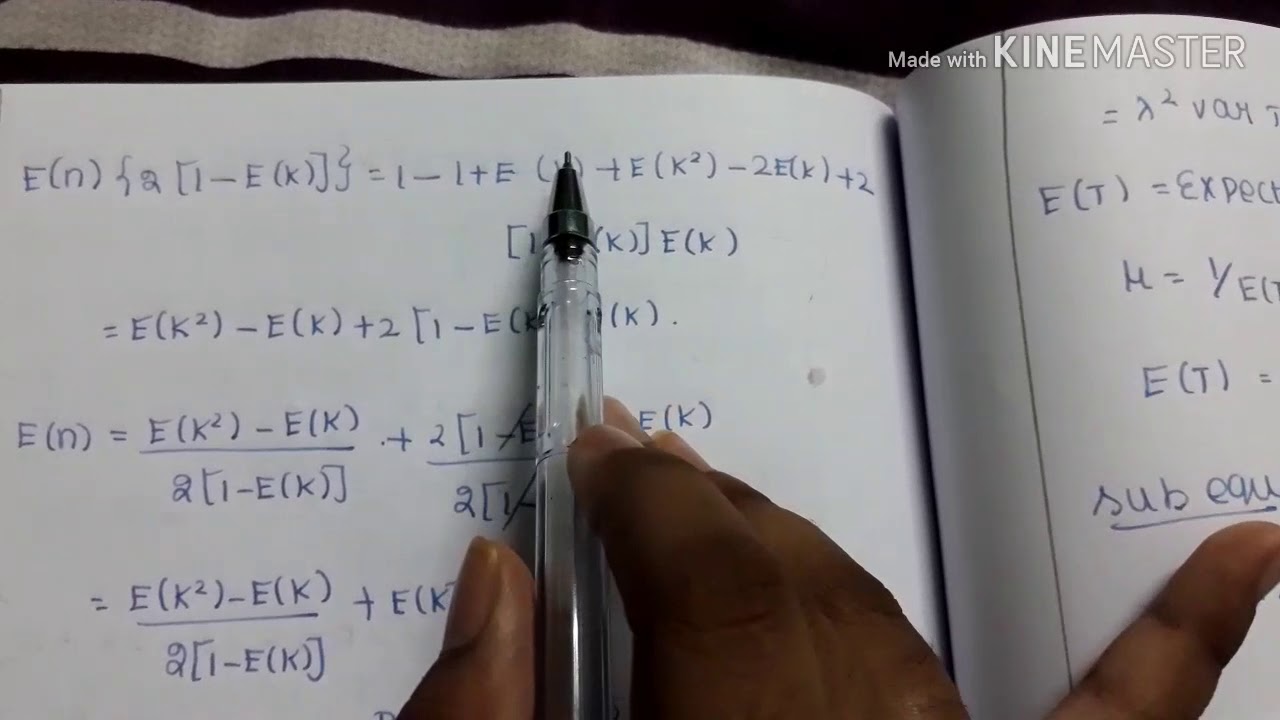 Made with KINEMASTER
E(n) {2 [1 - E(k)]} = 1 - 1 + E ( ) + E(K²) - 2E(k) + 2
[1 (K)] E(K)
= E(K²) - E(K) + 2 [1 - E(K (K).
E(n) = E(K²) - E(K) / 2[1-E(K)] + 2 [1 - E E(K) / 2[1-
= E(K²) - E(K) / 2[1-E(K)] + E(K
= λ² var T
E(T) = Expect
μ = 1/E(T
E(T) =
sub equ